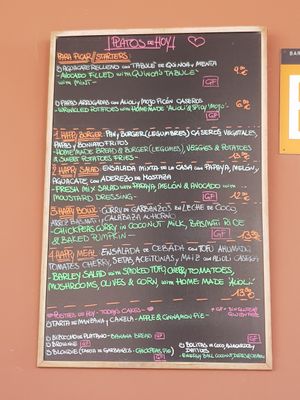 ¡PLATOS DE HOY!
PARA PICAR/STARTERS
AGUACATE RELLENO CON TABULÉ DE QUINOA Y MENTA
- AVOCADO FILLED WITH QUINOA'S TABULE
WITH MINT -
GF
PAPAS ARRUGADAS CON ALIOLI Y MOJO PICÓN CASEROS
- WRINKLED POTATOES WITH HOME MADE "ALIOLI & SPICY MOJO" -
GF
1 HAPPY BURGER PAN Y BURGER (LEGUMBRES) CASEROS, VEGETALES,
PAPAS Y BONIATO FRITOS
- HOME MADE BREAD & BURGER (LEGUMES), VEGGIES & POTATOES
& SWEET POTATOES FRIES -
2 HAPPY SALAD ENSALADA MIXTA DE LA CASA CON PAPAYA, MELÓN,
AGUACATE CON ADEREZO DE MOSTAZA
- FRESH MIX SALAD WITH PAPAYA, MELÓN & AVOCADO WITH
MOUSTARD DRESSING -
GF
3 HAPPY BOWL CURRY DE GARBANZOS EN LECHE DE COCO,
ARROZ BASMATI Y CALABAZA AL HORNO
- CHICKPEAS CURRY IN COCONUT MILK, BASMATI RICE
& BAKED PUMPKIN -
GF
4 HAPPY MEAL ENSALADA DE CEBADA CON TOFU AHUMADO,
TOMATES CHERRY, SETAS, ACEITUNAS Y MAIZ CON ALIOLI CASERO
- BARLEY SALAD WITH SMOKED TOFU, CHERRY TOMATOES,
MUSHROOMS, OLIVES & CORN, WITH HOME MADE ALIOLI -
POSTRES DE HOY - TODAY'S CAKES -
TARTA DE MANZANA Y CANELA - APPLE & CINNAMON PIE -
BIZCOCHO DE PLATANO - BANANA BREAD
BROWNIE GF
BLONDIE (TARTA DE GARBANZOS - CHICKPEAS PIE) GF
GF
BOLITAS DE COCO, ALMENDRAS,
DATILES